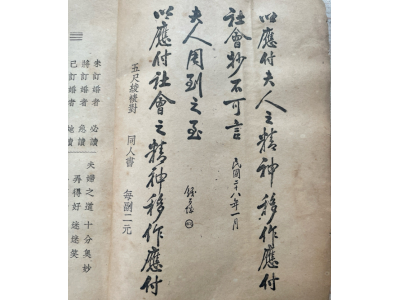 以應付夫人之精神移作應付
社會妙不可言
民國二十八年一月
夫人周到之至
以應付社會之精神移作應付
五尺綾裱對　同人書　每副二元
未訂婚者　必讀
將訂婚者　急讀
已訂婚者　快讀
夫婦之道　十分奧妙
再得好　迷迷笑